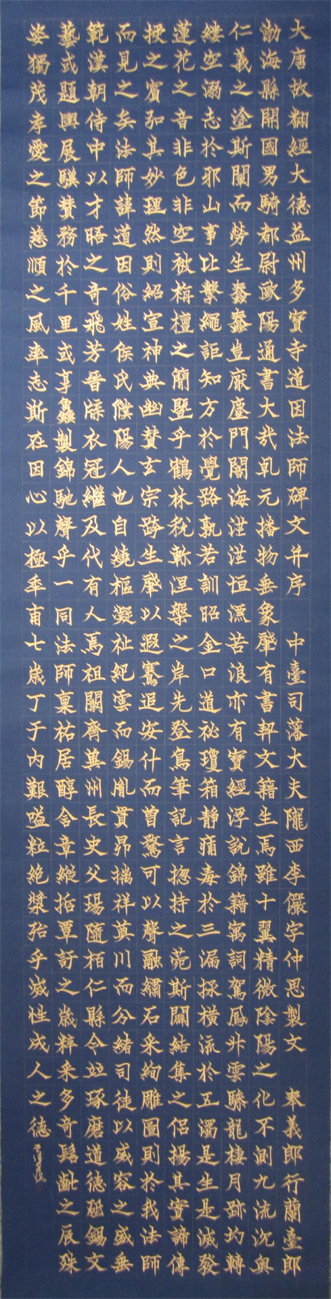 大唐故翻經大德益州多寶寺道因法師碑文并序　中臺司藩大夫隴西李儼字仲思製文　奉義郎行蘭臺郎
渤海縣開國男騎都尉歐陽通書大哉乾元播物垂象肇有書契文籍生焉雖十翼精微陰陽之化不測九流沉奧
仁義之塗斯闡而勞生蠢蠢豈厭塵門閱海茫茫恒漂苦浪亦有寶經浮說錦籍寓詞駕鳳升雲驂龍棲月跡均轉
縷空溺志於邪山事比繫繩詎知方於覺路孰若訓昭金口道祕瓊箱靜痛毒於三漏拯橫流於五濁是生是滅發
蓮花之音非色非空被栴檀之簡暨乎鶴林稅軫涅槃之岸先登鳥筆記言揔持之菀斯闢結集之侶揚其實諦傳
授之賓弘其妙理然則紹宣神典幽贊玄宗跨生肇以遐騫追安什而曾騖可以聲融繡石采絢雕圖則於我法師
而見之矣法師諱道因俗姓侯氏濮陽人也自繞樞凝祉紀雲而錫胤貫昴摛祥莫川而分緒司徒以威容之盛垂
範漢朝侍中以才晤之奇飛芳晉牒衣冠繼及代有人焉祖闞齊冀州長史父瑒隨柏仁縣令並琢磨道德砥錫文
藝或題輿展驥贊務於千里或享鱻製錦馳聲乎一同法師稟祐居醇含章縱拓覃訏之歲粹采多奇髫齔之辰殊
姿獨茂孝愛之節慈順之風率志斯在因心以極年甫七歲丁于內艱嗌粒絕漿殆乎滅性成人之德